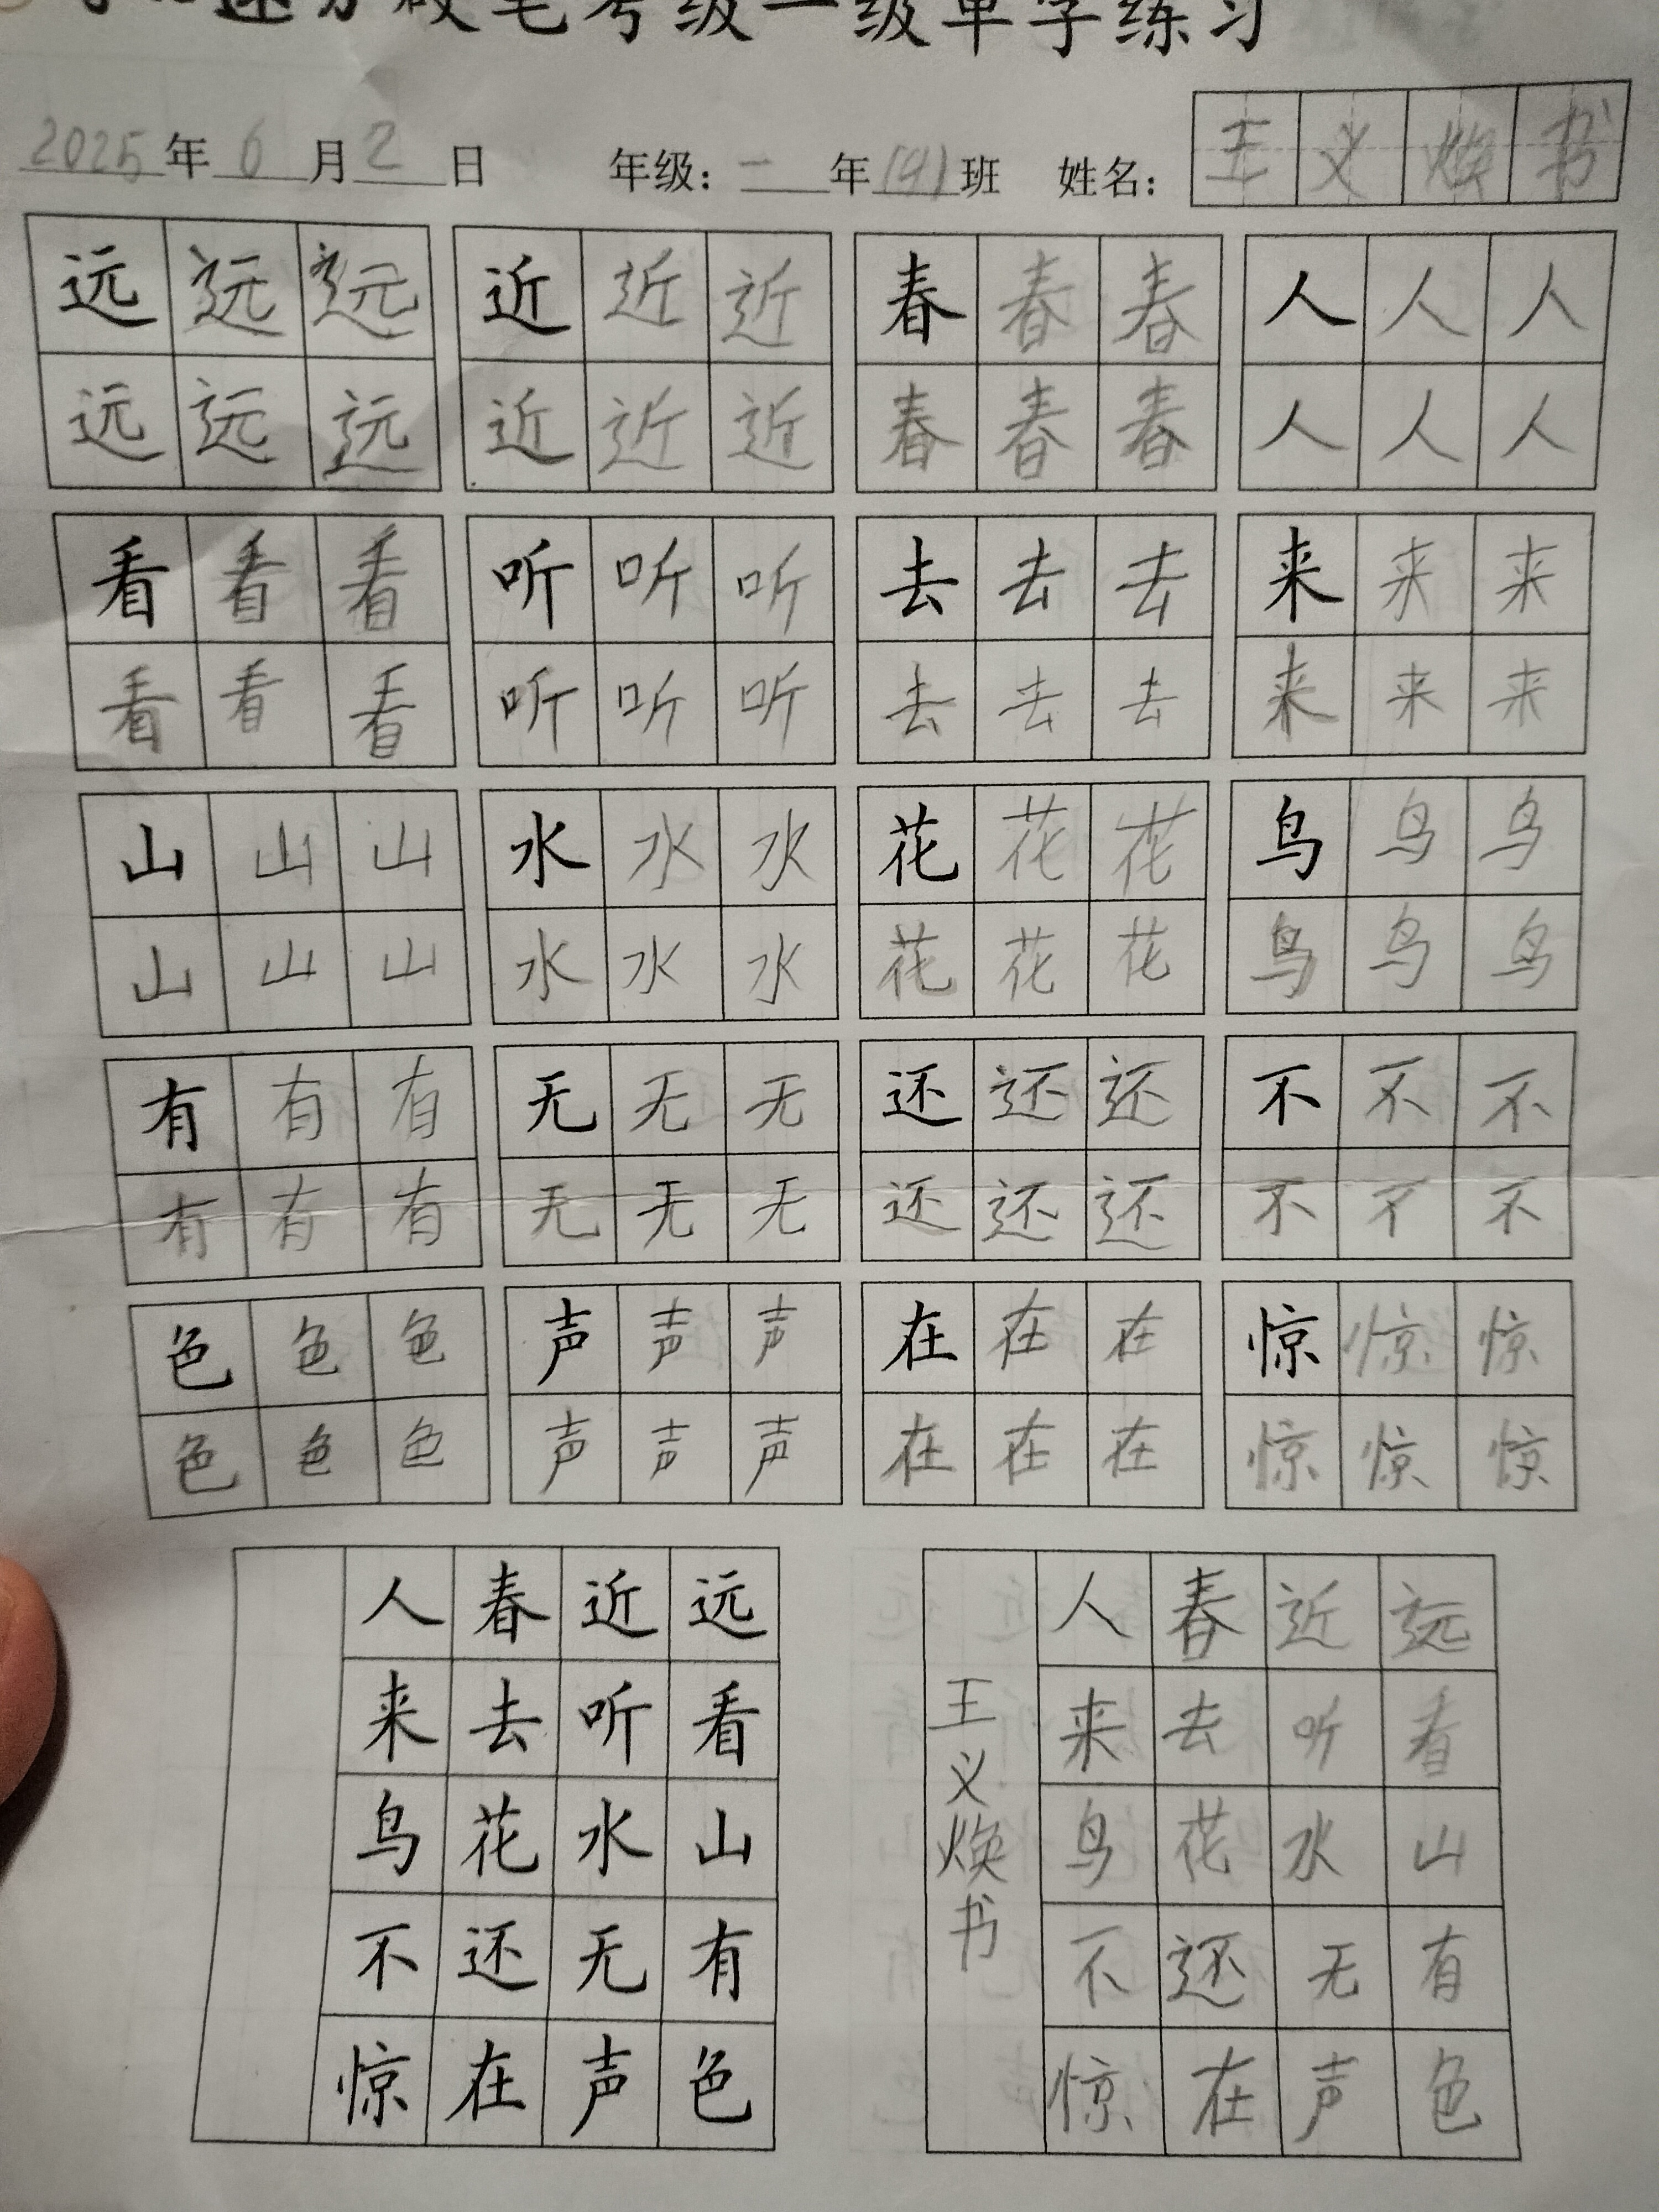 硬笔考级一级单字练习
2025年6月2日 年级：一年(9)班 姓名：王义焕书
远远远 近近近 春春春 人人人
远远远 近近近 春春春 人人人
看看看 听听听 去去去 来来来
看看看 听听听 去去去 来来来
山山山 水水水 花花花 鸟鸟鸟
山山山 水水水 花花花 鸟鸟鸟
有有有 无无无 还还还 不不不
有有有 无无无 还还还 不不不
色色色 声声声 在在在 惊惊惊
色色色 声声声 在在在 惊惊惊
远看山有色
近听水无声
春去花还在
人来鸟不惊
远看山有色
近听水无声
春去花还在
人来鸟不惊
王义焕书